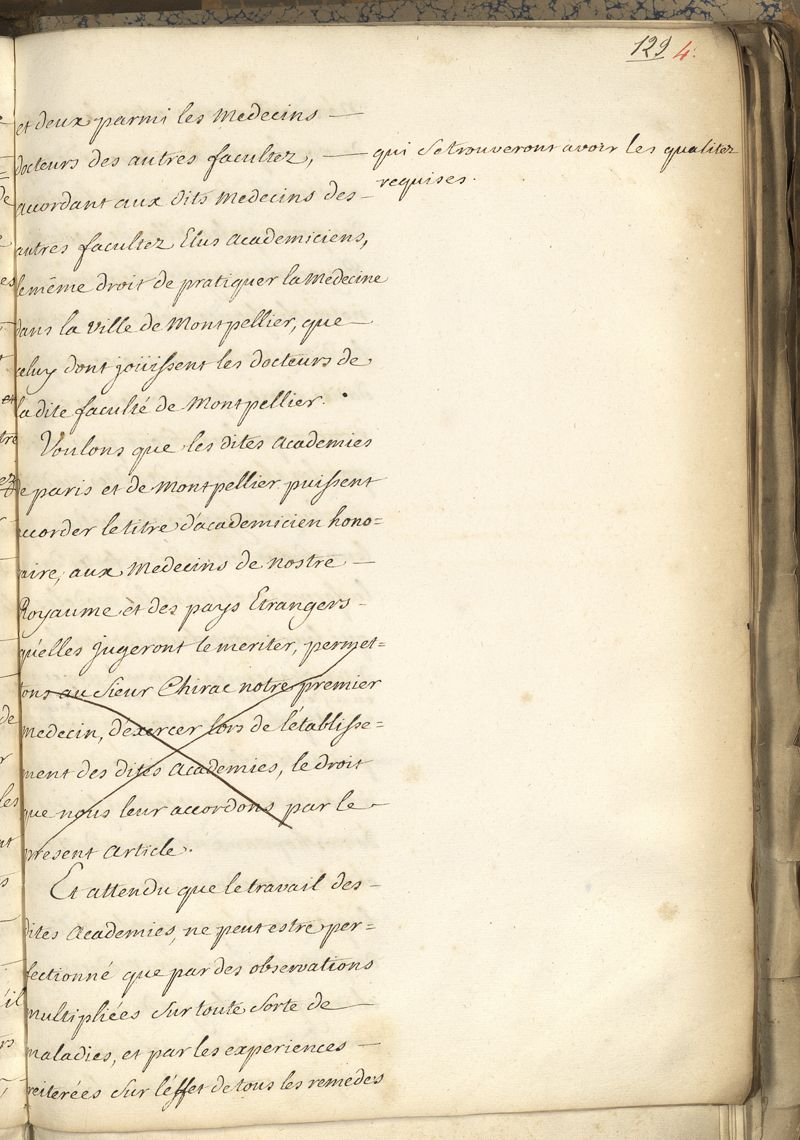 129 4.
et deux parmi les Medecins —
docteurs des autres facultez, — qui se trouveront avoir les qualitez
requises.
acordant aux dits Medecins des —
autres facultez Elus academiciens,
le même droit de pratiquer la Medecine
dans la ville de Montpellier, que —
celuy dont joüissent les docteurs de
la dite faculté de Montpellier.
Voulons que les dites academies
de paris et de Montpellier puissent
accorder le titre d'academicien hono=
raire, aux Medecins de nostre —
Royaume et des pays Etrangers -
qu'elles jugeront le meriter, permet=
tons au Sieur Chirac notre premier
medecin, d'éxercer lors de l'établisse=
ment des dites academies, le droit
que nous leur accordons par le -
present article.
Et attendu que le travail des -
dites academies, ne peut estre per=
fectionné que par des observations
multipliées sur toute sorte de —
maladies, et par les experiences —
reiterées sur l'éffet de tous les remedes